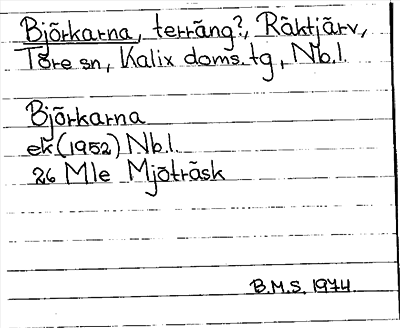 Björkarna, terräng?, Räktjärv,
Töre sn, Kalix doms. tg, Nb.l.
Björkarna
ek (1952) Nb.l.
26 Mle Mjöträsk
B.M.S. 1974